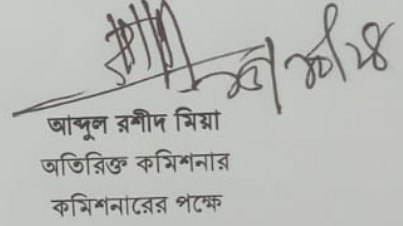 আব্দুল রশীদ মিয়া
অতিরিক্ত কমিশনার
কমিশনারের পক্ষে